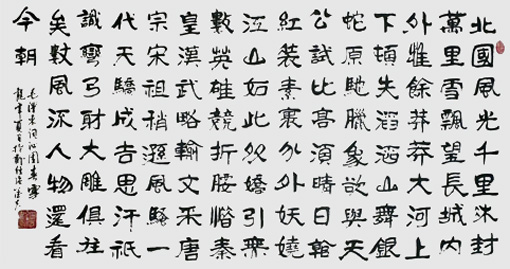 北國風光千里冰封
萬里雪飄望長城内
外惟餘莽莽大河上
下頓失滔滔山舞銀
蛇原馳臘象欲與天
公試比高須晴日看
紅装素裹分外妖嬈
江山如此多嬌引無
數英雄競折腰惜秦
皇漢武略輸文采唐
宗宋祖稍遜風騷一
代天驕成吉思汗祇
識彎弓射大雕俱往
矣數風流人物還看
今朝
毛澤東詞沁園春雪